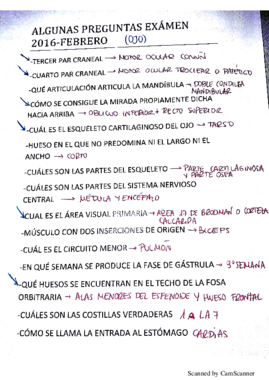 ALGUNAS PREGUNTAS EXÁMEN
2016-FEBRERO (OJO)
-TERCER PAR CRANEAL → MOTOR OCULAR COMÚN
-CUARTO PAR CRANEAL → MOTOR OCULAR TROCLEAR O PATÉTICO
-QUÉ ARTICULACIÓN ARTICULA LA MANDÍBULA → DOBLE CONDILEA
MANDIBULAR
-CÓMO SE CONSIGUE LA MIRADA PROPIAMENTE DICHA
HACIA ARRIBA → OBLICUO INFERIOR + RECTO SUPERIOR
-CUÁL ES EL ESQUELETO CARTILAGINOSO DEL OJO → TARSO
-HUESO EN EL QUE NO PREDOMINA NI EL LARGO NI EL
ANCHO → CORTO
-CUÁLES SON LAS PARTES DEL ESQUELETO → PARTE CARTILAGINOSA
Y PARTE OSEA
-CUÁLES SON LAS PARTES DEL SISTEMA NERVIOSO
CENTRAL → MÉDULA Y ENCÉFALO
-CUAL ES EL ÁREA VISUAL PRIMARIA → AREA 17 DE BRODMAN O CORTEZA
CALCARINA
-MÚSCULO CON DOS INSERCIONES DE ORIGEN → BICEPS
-CUÁL ES EL CIRCUITO MENOR → PULMÓN
-EN QUÉ SEMANA SE PRODUCE LA FASE DE GÁSTRULA → 3ª SEMANA
-QUÉ HUESOS SE ENCUENTRAN EN EL TECHO DE LA FOSA
ORBITRARIA → ALAS MENORES DEL ESFENOIDE Y HUESO FRONTAL
-CUÁLES SON LAS COSTILLAS VERDADERAS 1 A LA 7
-CÓMO SE LLAMA LA ENTRADA AL ESTÓMAGO CARDIAS
Scanned by CamScanner